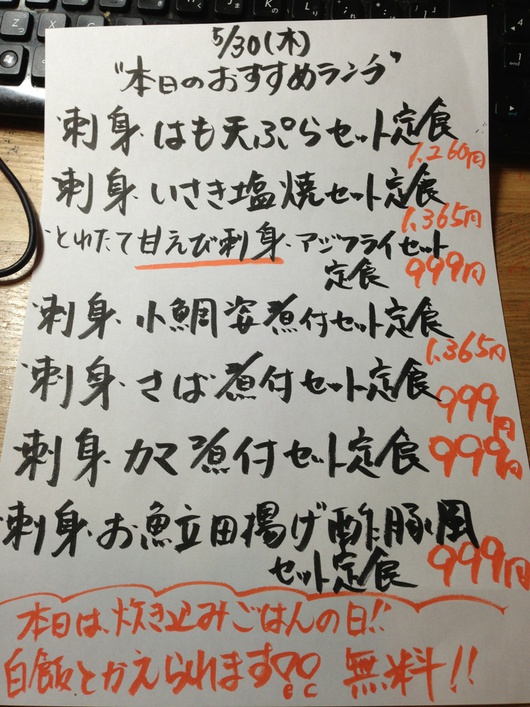 5/30(木)
"本日のおすすめランチ"
・刺身・はも天ぷらセット定食
1,260円
・刺身・いさき塩焼セット定食
1,365円
・とれたて甘えび刺身・アジフライセット
定食 999円
・刺身・小鯛姿煮付セット定食
1,365円
・刺身・さば煮付セット定食
999円
・刺身・カマ煮付セット定食 999円
・刺身・お魚立田揚げ酢豚風
セット定食 999円
本日は、炊き込みごはんの日!!
白飯とかえられます 無料!!